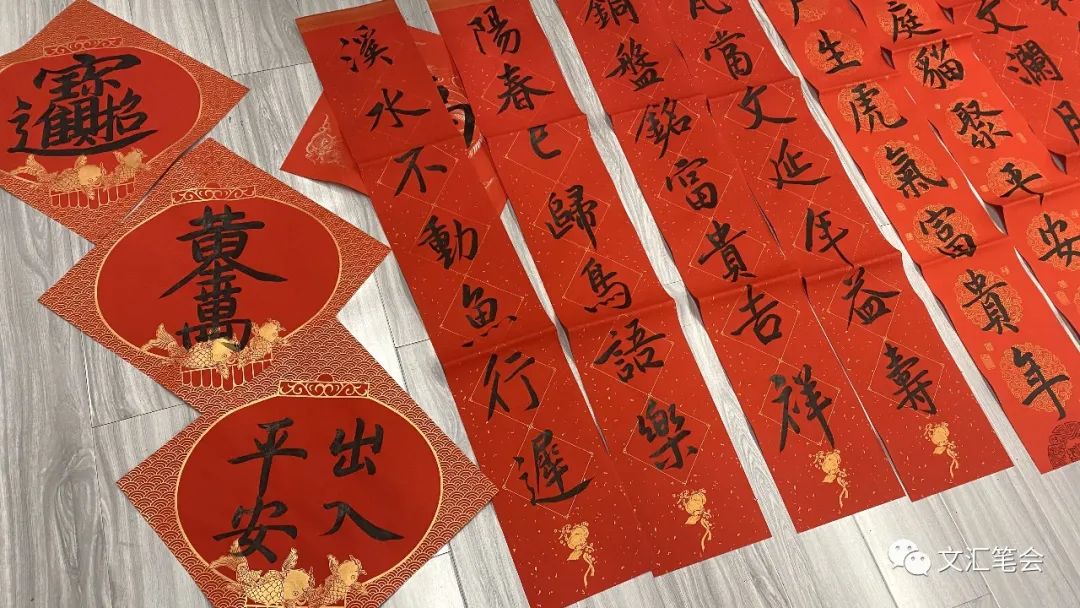 招財進寶
黄金萬
出入
平安
溪水不動魚行遲
陽春已歸鳥語樂
銅盤銘富貴吉祥
瓦當文延年益壽
生虎氣富貴年
庭貓聚平安
文瀾月
文汇笔会